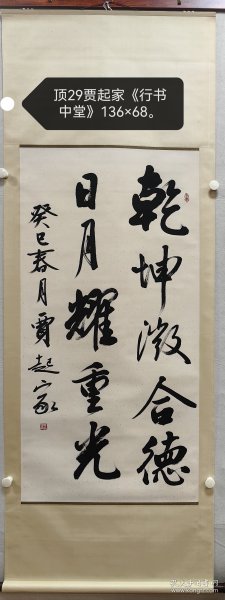 顶29贾起家《行书
中堂》136×68。
乾坤澂合德
日月耀重光
癸巳春月贾起家
www.kongfz.com